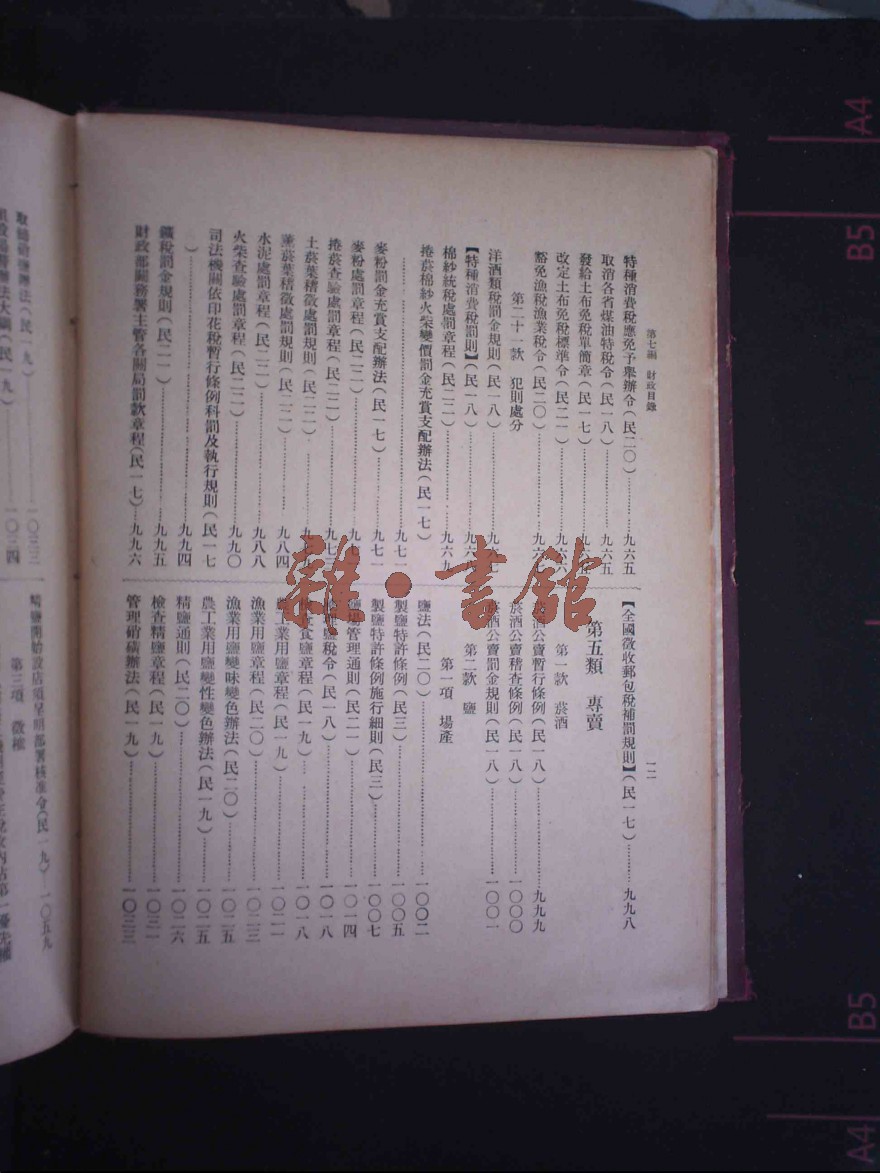 第七編　財政目錄
一二
特種消費稅應免予舉辦令(民二〇)………九六五
取消各省煤油特稅令(民一八)………九六五
發給土布免稅單簡章(民一七)………九六五
改定土布免稅標準令(民二一)………九六六
豁免漁稅漁業稅令(民二〇)………九六
第二十一款　犯則處分
洋酒類稅罰金規則(民一八)………九六
【特種消費稅罰則】(民一八)………九六
棉紗統稅處罰章程(民二二)………九六九
捲菸棉紗火柴變價罰金充賞支配辦法(民一七)
………九七一
麥粉罰金充賞支配辦法(民一七)………九七一
麥粉處罰章程(民二二)………九七
捲菸查驗處罰章程(民二二)………九七
土菸葉稽徵處罰規則(民二二)………九
薰菸葉稽徵處罰規則(民二二)………九八四
水泥處罰章程(民二二)………九八八
火柴查驗處罰章程(民二二)………九九〇
司法機關依印花稅暫行條例科罰及執行規則(民一七
)………九九四
鑛稅罰金規則(民二一)………九九五
財政部關務署主管各關局罰款章程(民一七)…九九六
【全國徵收郵包稅補罰規則】(民一七)………九九八
第五類　專賣
第一款　菸酒
菸酒公賣暫行條例(民一八)………九九九
菸酒公賣稽查條例(民一八)………一〇〇〇
菸酒公賣罰金規則(民一八)………一〇〇一
第二款　鹽
第一項　場產
鹽法(民二〇)………一〇〇二
製鹽特許條例(民三)………一〇〇五
製鹽特許條例施行細則(民三)………一〇〇七
鹽場管理通則(民二一)………一〇一四
鹽稅令(民一八)………一〇一八
食鹽章程(民一九)………一〇一八
農工業用鹽章程(民一九)………一〇二一
漁業用鹽章程(民二〇)………一〇二三
漁業用鹽變味變色辦法(民二〇)………一〇二五
農工業用鹽變性變色辦法(民一九)………一〇二五
精鹽通則(民二〇)………一〇二六
檢查精鹽章程(民一九)………一〇三一
管理硝磺辦法(民一九)………一〇三三
取締硝鹽辦法(民一九)………一〇三三
辦法大綱(民一九)………一〇三四
精鹽開始設店須呈明部署核准令(民一九)…一〇五九
第三項　徵榷